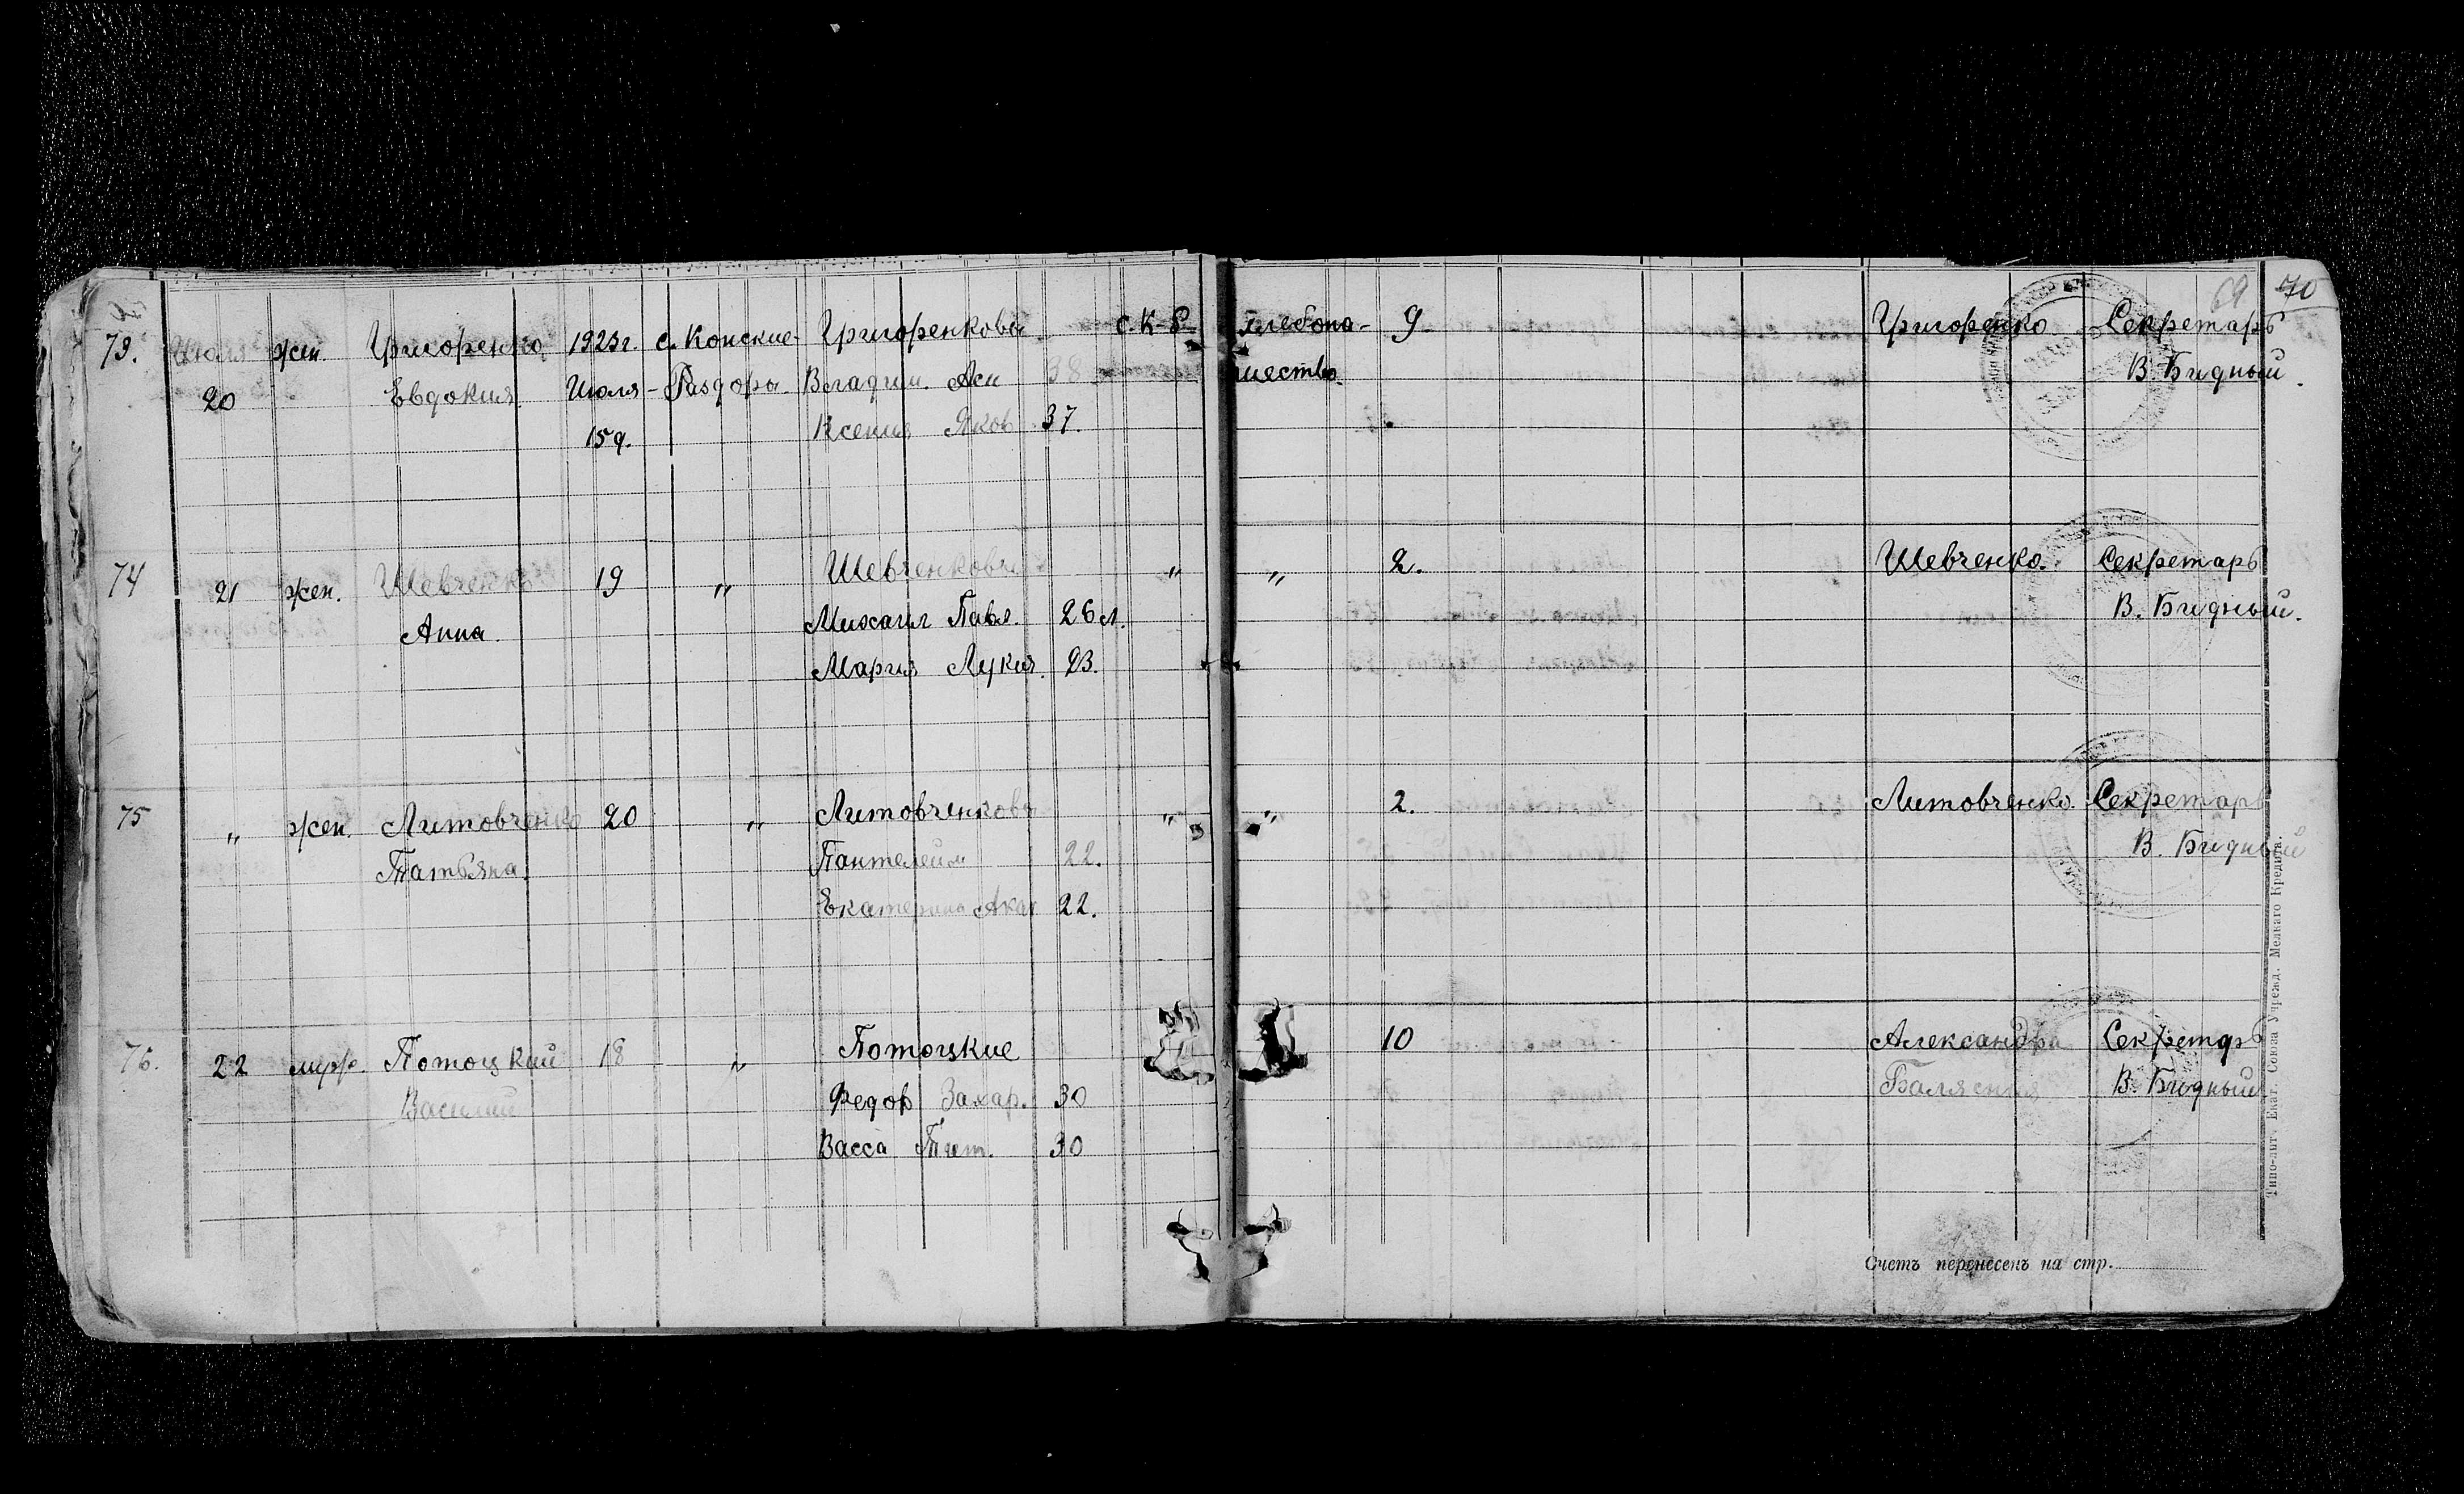 69 70
73. Июля жен. Григоренко 1923 г. с. Конские- Григоренковы с. К-Р. хлебопа- 9 Григоренко Секретарь
20 Евдокия Июля- Раздоры. Владим. 38 шество. В. Бидный.
15 д. Ксения Яков. 37.
74 21 жен. Шевченко 19 " Шевченковы " " 2. Шевченко. Секретарь
Анна. Михаил Павл. 26 л. В. Бидный.
Мария Лукич. 23.
75 " жен. Литовченко 20 " Литовченковы " " 2. Литовченко. Секретарь
Татьяна. Пантелейм 22. В. Бидный
Екатерина 22.
76. 22 муж. Потоцкий 18 " Потоцкие 10 Александра Секретарь
Василий Федор Захар. 30 Балясная В. Бидный
Васса Тит. 30
Счетъ перенесенъ на стр.
Типо-лит. Екат. Союза Учрежд. Мелкаго Кредита.